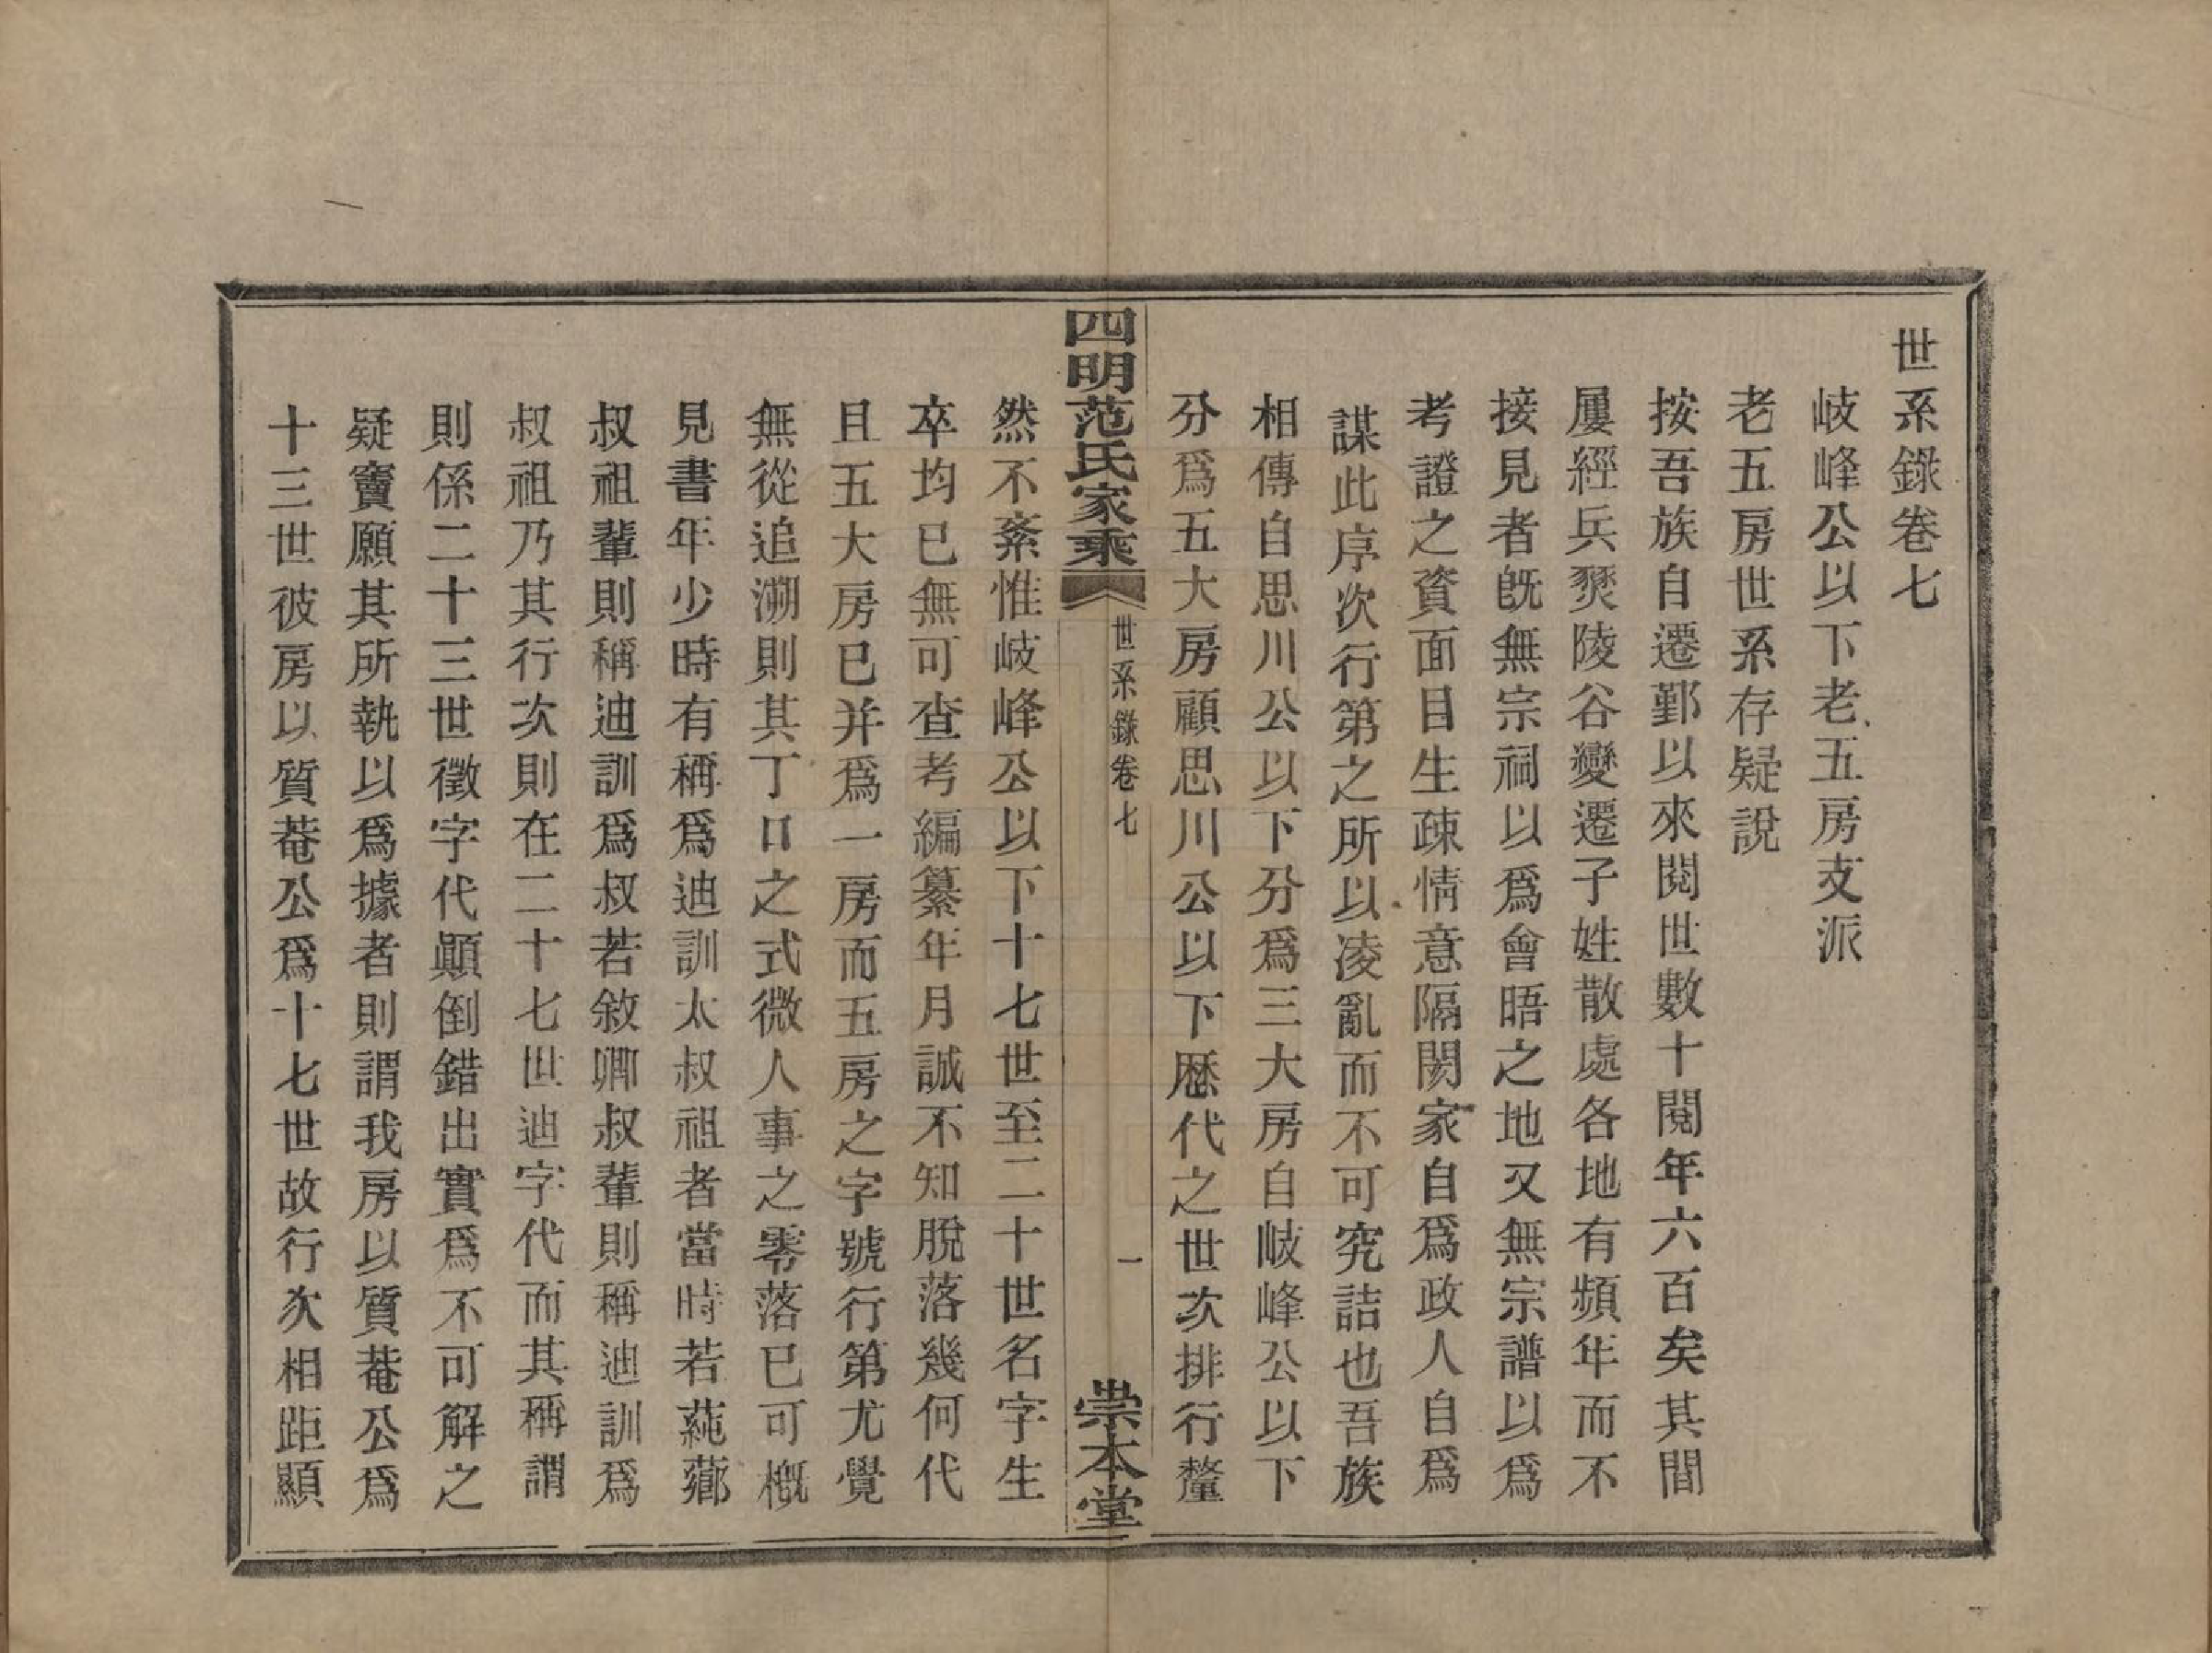 世系錄卷七
岐峰公以下老五房支派
老五房世系存疑說
按吾族自遷鄞以來閱世數十閱年六百矣其間
屢經兵燹陵谷變遷子姓散處各地有頻年而不
接見者旣無宗祠以爲會晤之地又無宗譜以爲
考證之資面目生疎情意隔閡家自爲政人自爲
謀此序次行第之所以凌亂而不可究詰也吾族
相傳自思川公以下分爲三大房自岐峰公以下
分爲五大房顧思川公以下歷代之世次排行釐
四明范氏家乘
世系錄卷七
一
崇本堂
然不紊惟岐峰公以下十七世至二十世名字生
卒均已無可查考編纂年月誠不知脫落幾何代
且五大房已并爲一房而五房之字號行第尤覺
無從追溯則其丁口之式微人事之零落已可槪
見書年少時有稱爲迪訓太叔祖者當時若蒓薌
叔祖輩則稱迪訓爲叔若敘卿叔輩則稱迪訓爲
叔祖乃其行次則在二十七世迪字代而其稱謂
則係二十三世徵字代顚倒錯出實爲不可解之
疑竇願其所執以爲據者則謂我房以質菴公爲
十三世彼房以質菴公爲十七世故行次相距顯